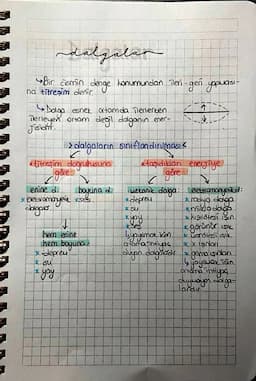 dalgalar
↳ Bir cismin denge konumundan ileri-geri yapması-
na titreşim denir.
↳ Dalga esnek ortamda ilerlerken
ilerleyen ortam değil dalganın ener-
jisidir.
> dalgaların sınıflandırılması <
titreşim doğrultusuna
göre
taşıdıkları enerjiye
göre
enine d.
boyuna d.
mekanik dalga
elektromanyetik d.
x elektromanyetik
dalgalar
x ses
x deprem
x su
x yay
x ses
x radyo dalga
x mikro dalga
x kızılötesi ışın
x görünür ışık
x x ışınları
x gama ışınları
hem enine
hem boyuna
x deprem
x su
x yay
yayılmak için
ortama ihtiyaç
duyan dalgalardır
↳ yayılmak için
ortama ihtiyaç
duymayan dalga-
lardır